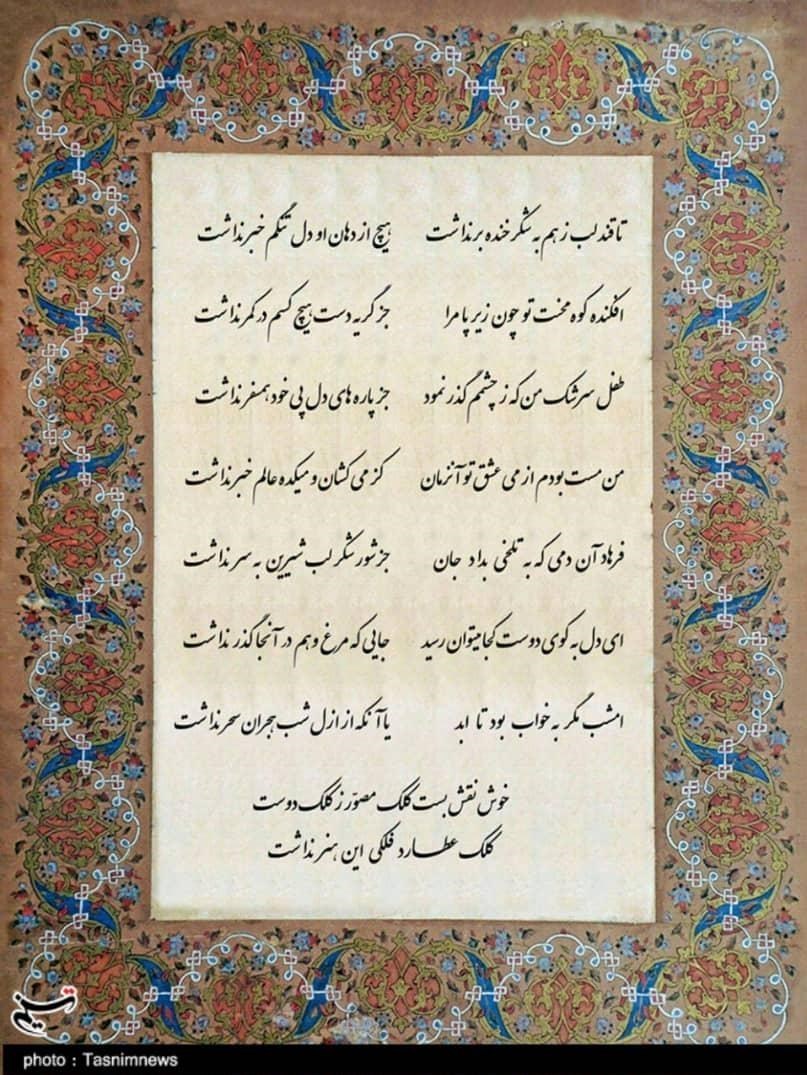 تا قند لب ز هم به شکر خنده بر نداشت هیچ از دهان او دل تنگم خبر نداشت
افکنده کوه محنت تو چون زیر پا مرا جز گریه دست هیچ کسم در کمر نداشت
طفل سرشک من که ز چشمم گذر نمود جز پاره های دل پی خود همسفر نداشت
من مست بودم از می عشق تو آنزمان کز می کشان و میکده عالم خبر نداشت
فرهاد آن دمی که به تلخی بداد جان جز شور شکر لب شیرین به سر نداشت
ای دل به کوی دوست کجا میتوان رسید جایی که مرغ وهم در آنجا گذر نداشت
امشب مگر به خواب بود تا ابد یا آنکه از ازل شب هجران سحر نداشت
خوش نقش بست کلک مصوّر ز کلک دوست
کلک عطارد فلکی این هنر نداشت
تسنیم
photo : Tasnimnews